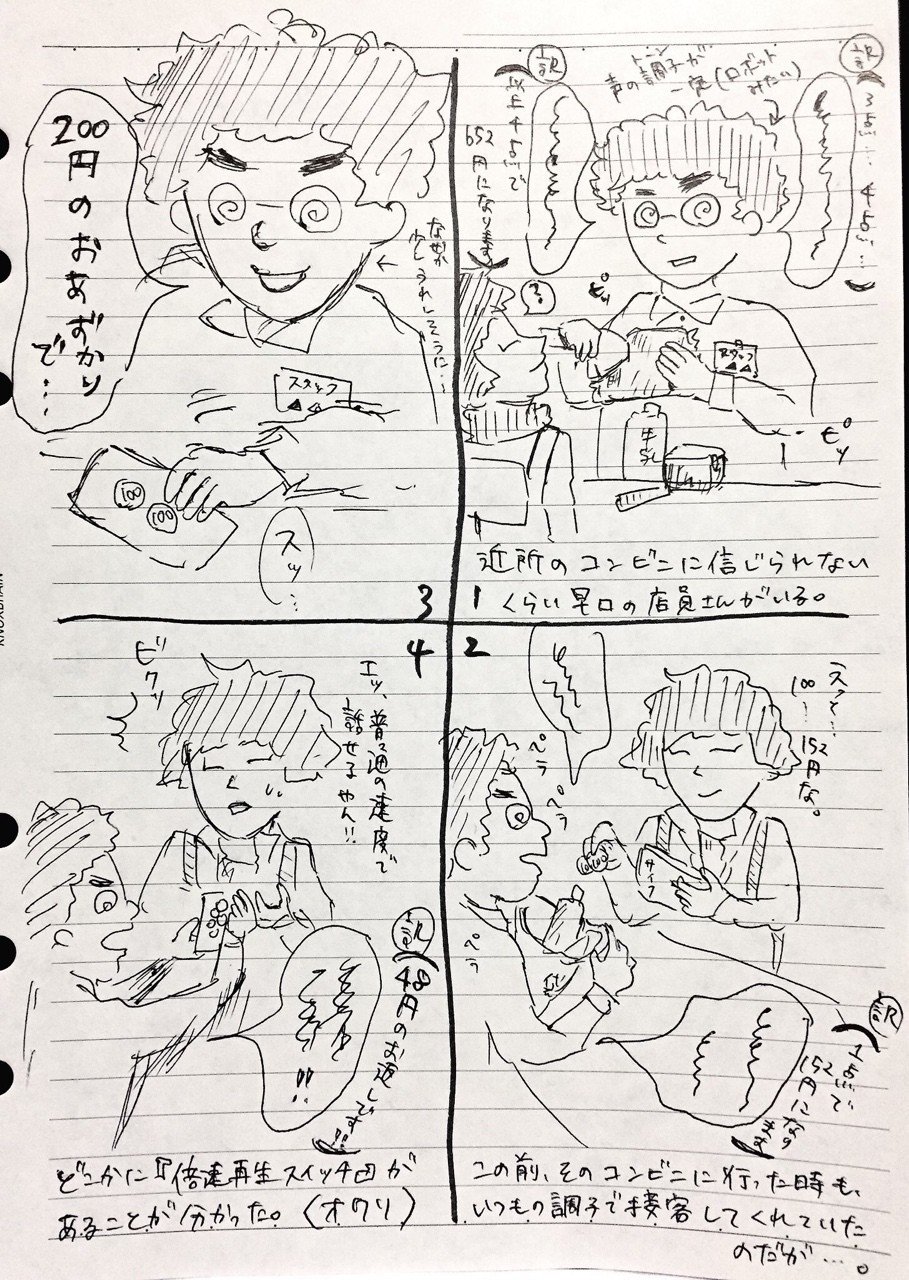 訳
3点… 4点…
声の調子が
トーン
一定(ロボット
みたい)
訳
以上4点で
652円になります
?
ピッ
スタッフ
ピッ
牛乳
近所のコンビニに信じられない
くらい早口の店員さんがいる。
1
2
えっと…
100…152円な。
ペラ
ペラ
ペラ
サイフ
100
訳
1点で
152円になります
この前、そのコンビニに行った時も、
いつもの調子で接客してくれていた
のだが…。
3
200円のおあずかりで…
なぜか
少しうれしそうに…
スタッフ
100
100
スッ…
4
ビクッ
エッ、普通の速度で
話せるやん!!
訳
48円のお返しです!!
!!
どこかに『倍速再生スイッチ』が
あることが分かった。(オワリ)